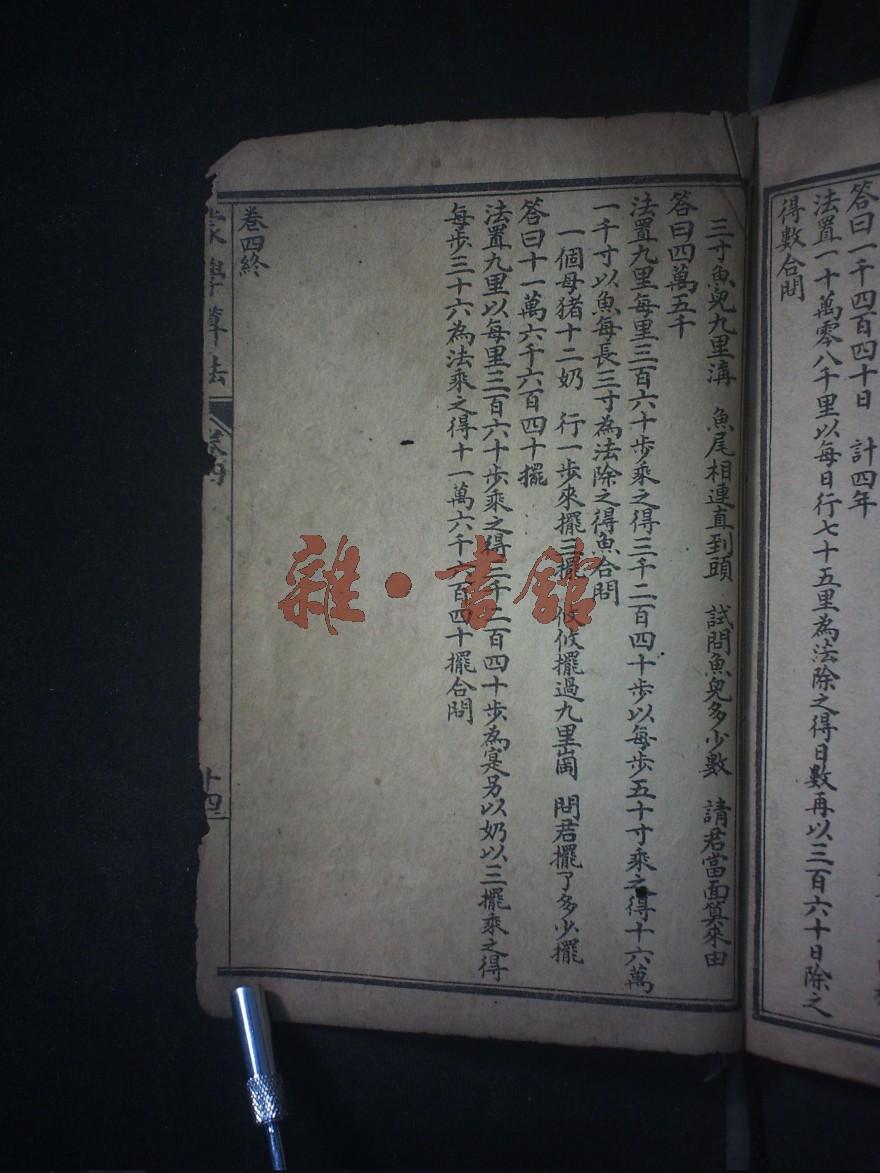 答曰一千四百四十日　計四年
法置一十萬零八千里以每日行七十五里為法除之得日數再以三百六十日除之
得數合問
三寸魚兒九里溝　魚尾相連直到頭　試問魚兒多少數　請君當面算來由
答曰四萬五千
法置九里每里三百六十步乘之得三千二百四十步以每步五十寸乘之得十六萬
一千寸以魚每長三寸為法除之得魚合問
一個母猪十二奶　行一步來擺三擺　攸攸擺過九里崗　問君擺了多少擺
答曰十一萬六千六百四十擺
法置九里以每里三百六十步乘之得三千二百四十步為寔另以奶以三擺乘之得
每步三十六為法乘之得十一萬六千六百四十擺合問
卷四終
學算法
十四
雜·書館